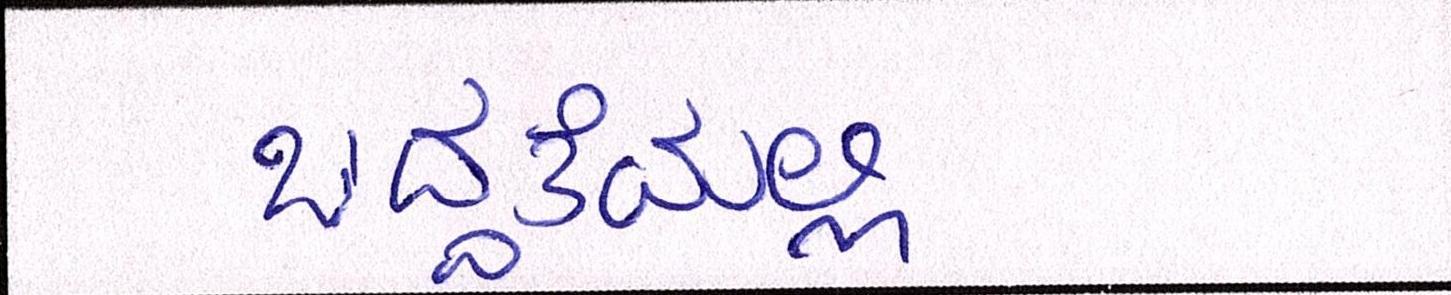 ಬದ್ಧತೆಯಲ್ಲಿ